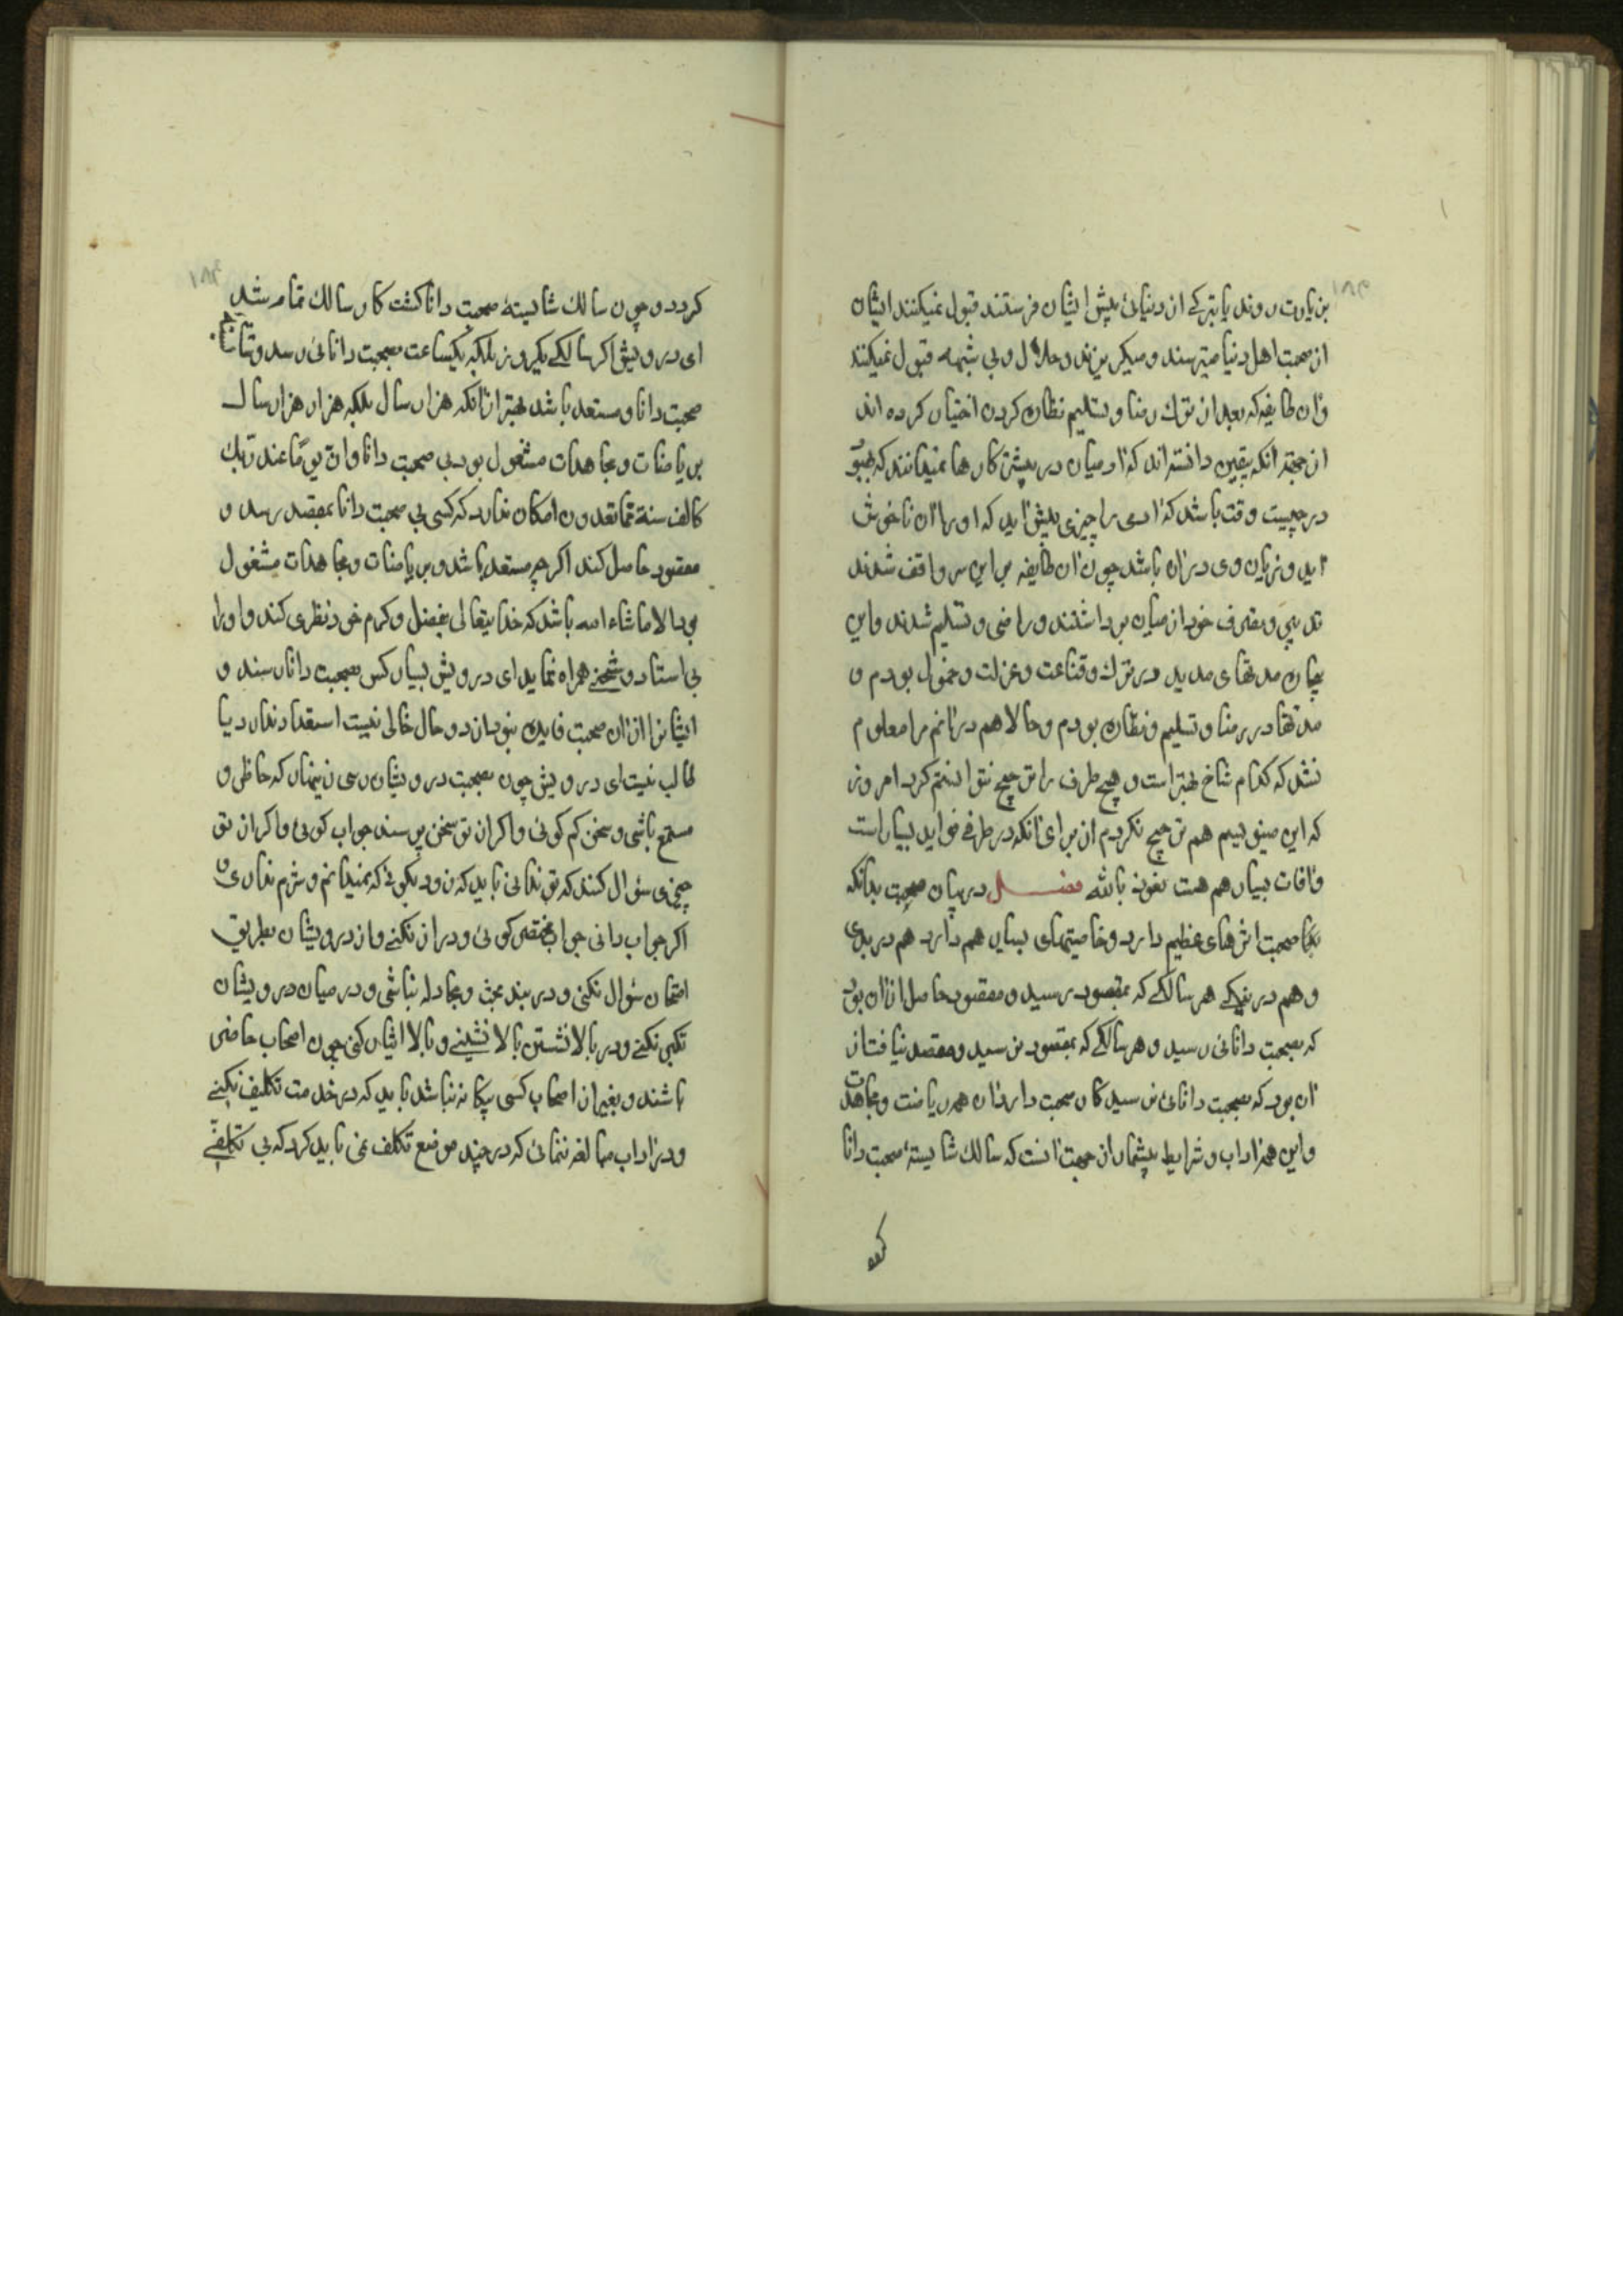 بزیارت روند یا تبرکے از دنیائی پیش ایشان فرستند قبول نمیکنند ایشان
از صحبت اهل دنیا میترسند و میکریزند و حلال و بی شبهه قبول نمیکنند
و آن طایفه که بعد از ترک رضا و تسلیم نظاره کردن اختیار کرده اند
از جهة آنکه بیقین دانسته اند که ادمیان در بیشتر کارها نمیدانند که بهبود
در چیست وقت باشد که ادمی را چیزی پیش اید که او را از ان ناخوش
اید و زیان وی در ان باشد چون ان طایفه بر این سر واقف شدند
تدبیر و تصرف خود از میان برداشتند و راضی و تسلیم شدند و این
بیچاره مدتهای مدید در ترک و قناعت و عزلت و خمول بودم و
مدتها در رضا و تسلیم و نظاره بودم و حالا هم درانم مرا معلوم
نشد که کدام شاخ بهتر است و هیچ طرف را ترجیح نتوانستم کرد امروز
که این مینویسم هم ترجیح نکردم از برای آنکه در هر طرفے فواید بسیار است
و افات بسیار هم هست نعوذ بالله فصل در بیان صحبت بدانکه
صحبت اثرهای عظیم دارد و خاصیتهای بسیار هم دارد هم در بدی
و هم در نیکے هر سالکے که بمقصود رسید و مقصود حاصل از ان بود
که بصحبت دانائی رسید و هر سالکے که بمقصود نرسید و مقصد نیافت از
ان بود که بصحبت دانائی نرسید کار صحبت دارد ان همه ریاضت و مجاهدت
و این همه اداب و شرایط بیشمار از جهت انست که سالک شایستهٔ صحبت دانا
کردد
کردد و چون سالک شایستهٔ صحبت دانا کشت کار سالک تمام شد
ای درویش اکر سالکے یکروز بلکه یکساعت بصحبت دانائی رسد و شایسته
صحبت دانا و مستعد باشد بهتر از انکه هزار سال بلکه هزار هزار سال
بریاضات و مجاهدات مشغول بود بی صحبت دانا و ان یوما عند ربک
کالف سنة مما تعدون امکان ندارد که کسی بی صحبت دانا بمقصد رسد و
مقصود حاصل کند اکر چه مستعد باشد و بریاضات و مجاهدات مشغول
بود الا ما شاء الله باشد که خدایتعالی بفضل و کرم خود نظری کند و او را
بی استاد و شیخے همراه نماید ای درویش بسیار کس بصحبت دانا رسند و
ایشانرا از ان صحبت فایده نبود از دو حال خالی نیست استعداد ندارد یا
طالب نیست ای درویش چون بصحبت درویشان رسی زینهار که حاظر و
مستمع باشی و سخن کم کوئی و اکر از تو سخن پرسند جواب کوئی و اکر از تو
چیزی سؤال کنند که تو ندانی باید که زود بکوئی که نمیدانم و شرم نداری و
اکر جواب دانی جواب مختصر کوئی و دراز نکنے و از درویشان بطریق
امتحان سؤال نکنی و در بند بحث و مجادله نباشی و در میان درویشان
تکبر نکنے و در بالا نشستن بالا نشینے و بالا ایثار کنی چون اصحاب حاضر
باشند و بغیر از اصحاب کسی بیکانه نباشد باید که در خدمت تکلیف نکنے
و در اداب مبالغه ننمائی که در چند موضع تکلف نمی باید کرد که بی تکلفے